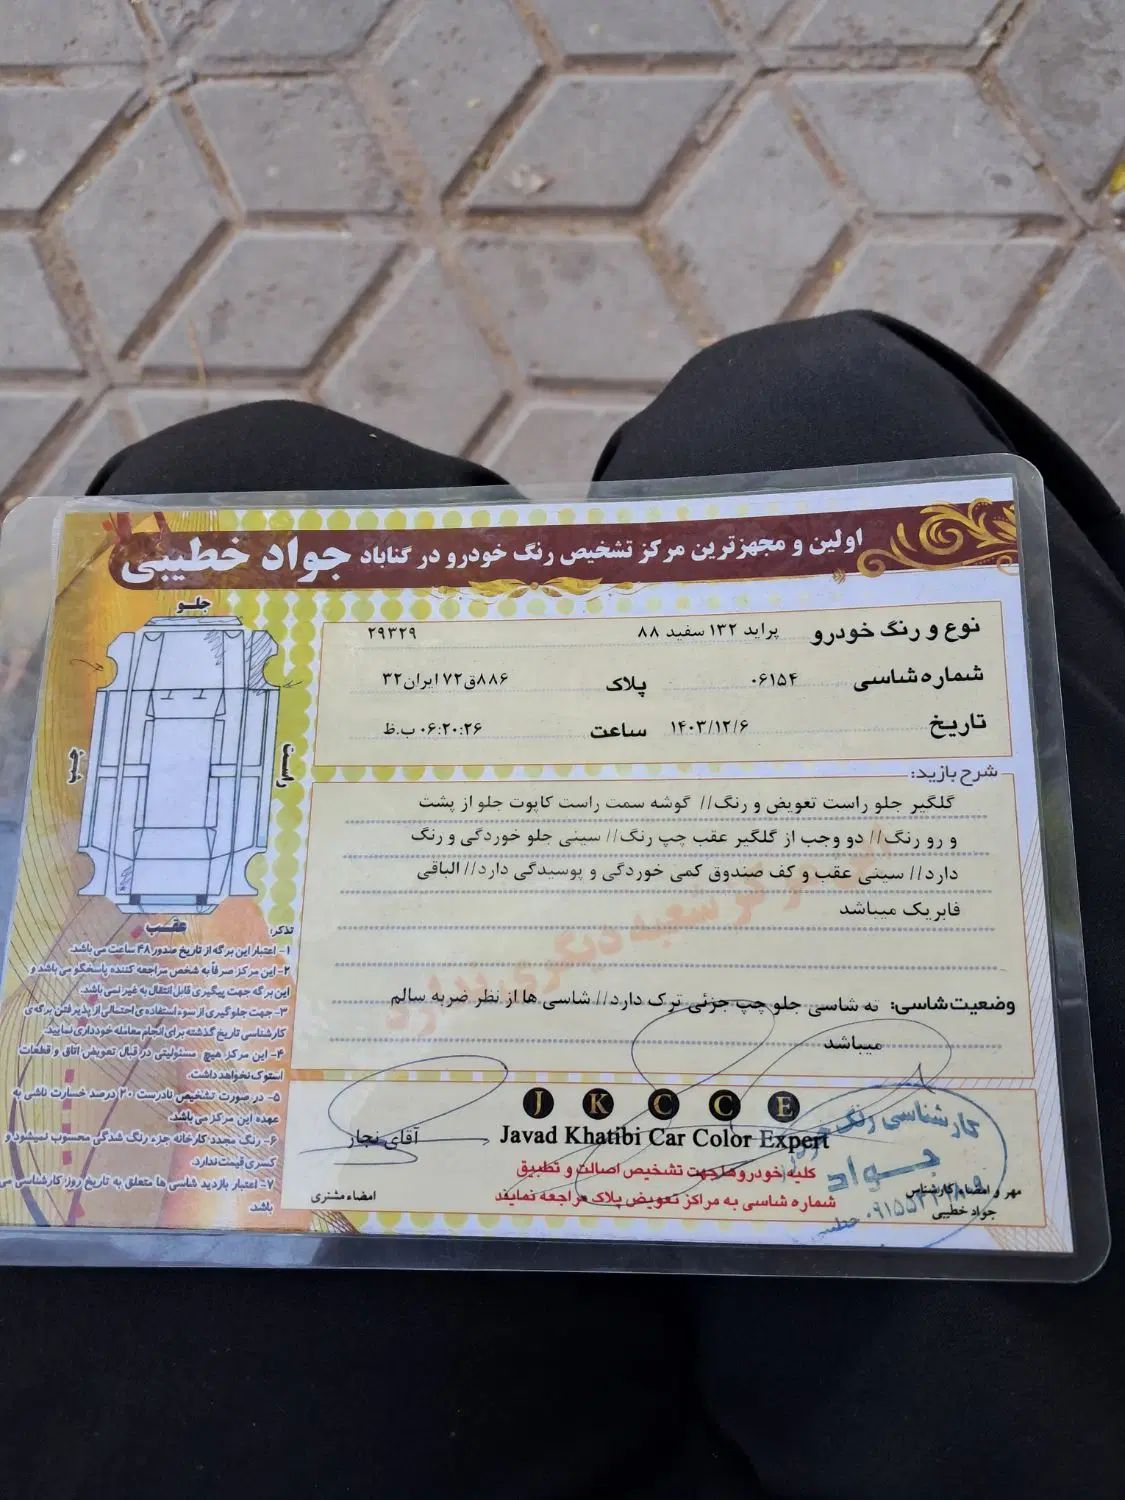 اولین و مجهزترین مرکز تشخیص رنگ خودرو در گناباد جواد خطیبی
نوع و رنگ خودرو پراید ۱۳۲ سفید ۸۸ ۲۹۳۲۹
شماره شاسی ۰۶۱۵۴ پلاک ۸۸۶ق۷۲ ایران۳۲
تاریخ ۱۴۰۳/۱۲/۶ ساعت ۰۶:۲۰:۲۶ ب.ظ
شرح بازدید:
گلگیر جلو راست تعویض و رنگ// گوشه سمت راست کاپوت جلو از پشت
و رو رنگ// دو وجب از گلگیر عقب چپ رنگ// سینی جلو خوردگی و رنگ
دارد// سینی عقب و کف صندوق کمی خوردگی و پوسیدگی دارد// الباقی
فابریک میباشد
شعبه دیگری ندارد
وضعیت شاسی: ته شاسی جلو چپ جزئی ترک دارد// شاسی ها از نظر ضربه سالم
میباشد
جلو
چپ
راست
عقب
تذکر:
۱- اعتبار این برگه از تاریخ صدور ۴۸ ساعت می باشد.
۲- این مرکز صرفاً به شخص مراجعه کننده پاسخگو می باشد و
این برگه جهت پیگیری قابل انتقال به غیر نمی باشد.
۳- جهت جلوگیری از سوء استفاده ی احتمالی از پذیرفتن برگه ی
کارشناسی تاریخ گذشته برای انجام معامله خودداری نمایید.
۴- این مرکز هیچ مسئولیتی در قبال تعویض اتاق و قطعات
استوک نخواهد داشت.
۵- در صورت تشخیص نادرست ۲۰ درصد خسارت ناشی به
عهده این مرکز می باشد.
۶- رنگ مجدد کارخانه جزء رنگ شدگی محسوب نمیشود و
کسری قیمت ندارد.
۷- اعتبار بازدید شاسی ها متعلق به تاریخ روز کارشناسی می
باشد.
J K C C E
Javad Khatibi Car Color Expert
کلیه خودروها جهت تشخیص اصالت و تطبیق
شماره شاسی به مراکز تعویض پلاک مراجعه نمایند
آقای نجار
امضاء مشتری
مهر و امضاء کارشناس
جواد خطیبی
کارشناسی رنگ
جواد
خطیبی